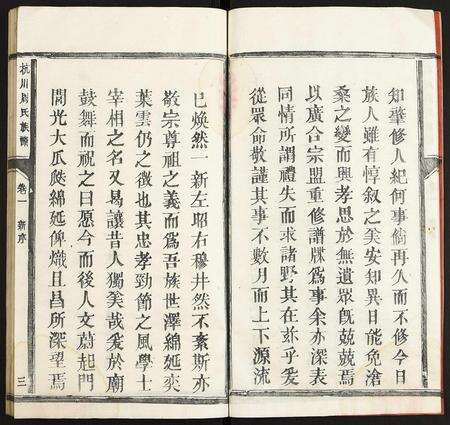 知華修人紀何事倘再久而不修今日
族人雖有惇敘之美安知異日能免滄
桑之變而興孝思於無遺眾既兢兢焉
以廣合宗盟重修譜牒爲事余亦深表
同情所謂禮失而求諸野其在斯乎爰
從眾命敬謹其事不數月而上下源流
已煥然一新左昭右穆井然不紊斯亦
敬宗尊祖之義而爲吾族世澤綿延奕
葉雲仍之徵也其忠孝勁節之風學士
宰相之名又曷讓昔人獨美哉爰於廟
鼓舞而祝之曰愿今而後人文蔚起門
閭光大瓜瓞綿延俾熾且昌所深望焉
杭川周氏族譜 卷一 新序 三